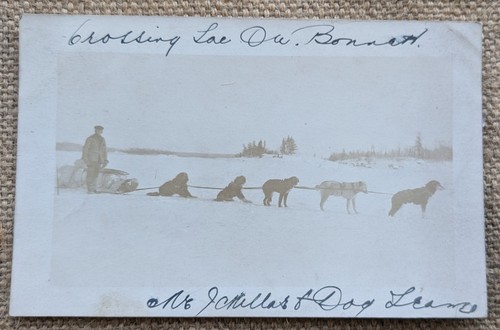 Crossing Lac Du. Bonnett.
Mr McKellar & Dog Team